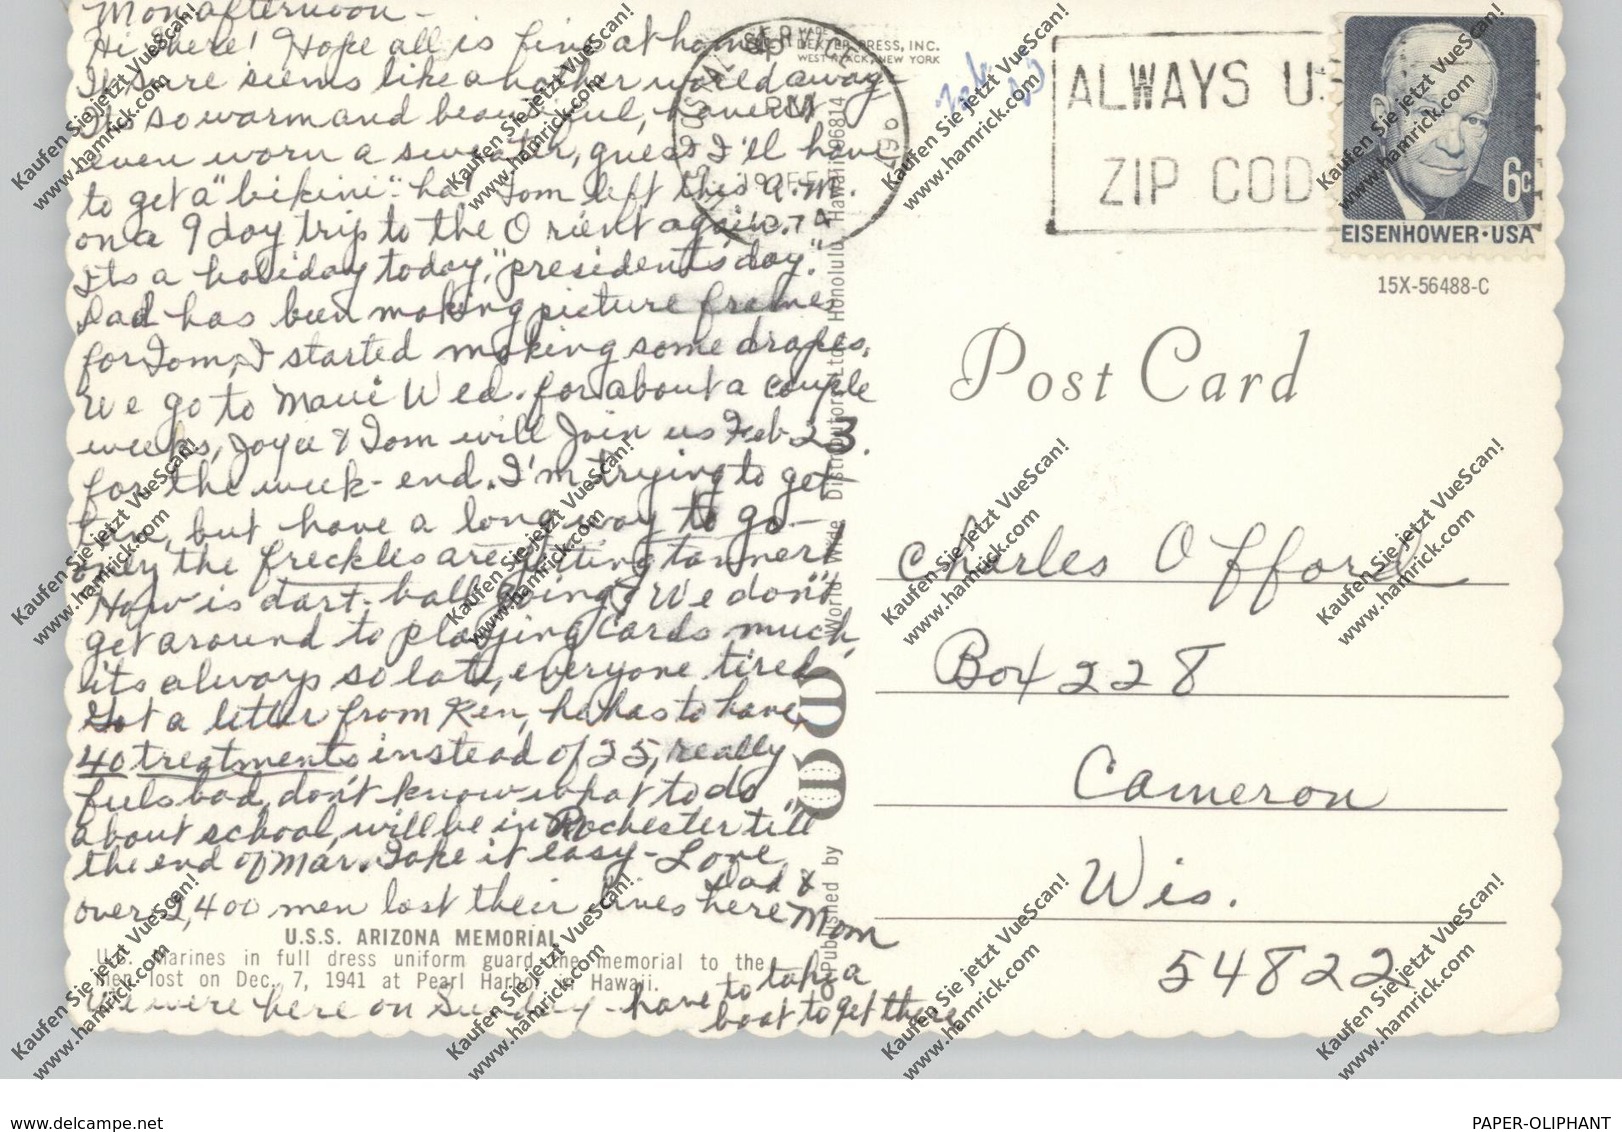 Mon afternoon -
Hi there! Hope all is fine at home,
It sure seems like another world away
Its so warm and beautiful, haven't
even worn a sweater, guess I'll have
to get a "bikini" - ha! Tom left this a.m.
on a 9 day trip to the Orient again.
Its a holiday today, "presidents day."
Dad has been making picture frames
for Tom, I started making some drapes.
We go to Maui Wed. for about a couple
weeks, Joyce & Tom will join us Feb 23.
for the week-end. I'm trying to get
tan, but have a long way to go -
only the freckles are getting tanner!
How is dart-ball going? We don't
get around to playing cards much,
its always so late, everyone tired
Got a letter from Ken, he has to have
40 treatments instead of 25, really
feels bad, don't know what to do
about school, will be in Rochester till
the end of Mar. Take it easy - Love
Dad &
Mom
over 2,400 men lost their lives here
U.S.S. ARIZONA MEMORIAL
U.S. Marines in full dress uniform guard the memorial to the
men lost on Dec. 7, 1941 at Pearl Harbor in Hawaii.
We were here on Sunday - have to take a
boat to get there
MADE
DEXTER PRESS, INC.
WEST NYACK, NEW YORK
PM
1974
ALWAYS U
ZIP COD
6c
EISENHOWER·USA
15X-56488-C
Post Card
Published by
World Wide Distributors Ltd. Honolulu, Hawaii 96814
Charles Offord
Box 228
Cameron
Wis.
54822
Kaufen Sie jetzt VueScan!
www.hamrick.com
www.delcampe.net
PAPER-OLIPHANT